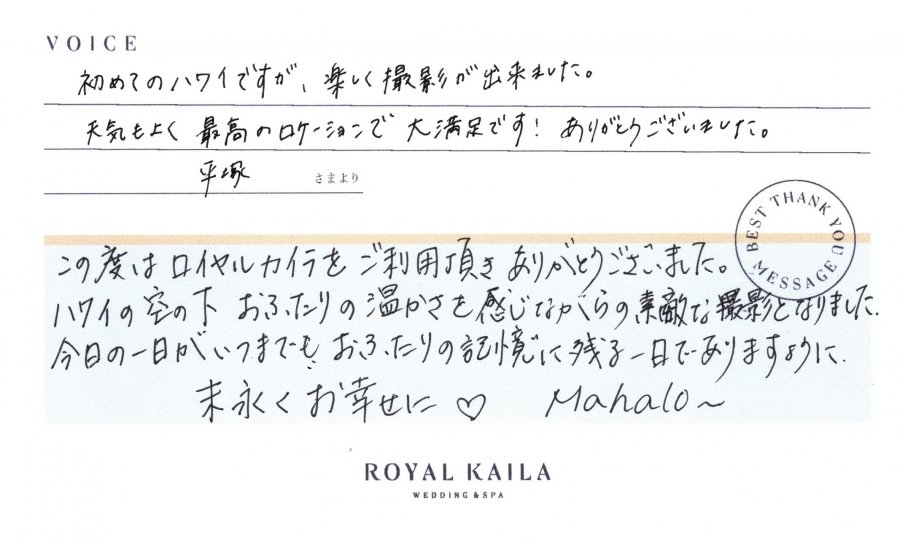 VOICE
初めてのハワイですが、楽しく撮影が出来ました。
天気もよく 最高のロケーションで 大満足です！ ありがとうございました。
平塚 さまより
BEST THANK YOU MESSAGE
この度はロイヤルカイラをご利用頂きありがとうございました。
ハワイの空の下 おふたりの温かさを感じながらの素敵な撮影となりました.
今日の一日がいつまでも おふたりの記憶に残る一日でありますように.
末永くお幸せに ♡ Mahalo~
ROYAL KAILA
WEDDING & SPA